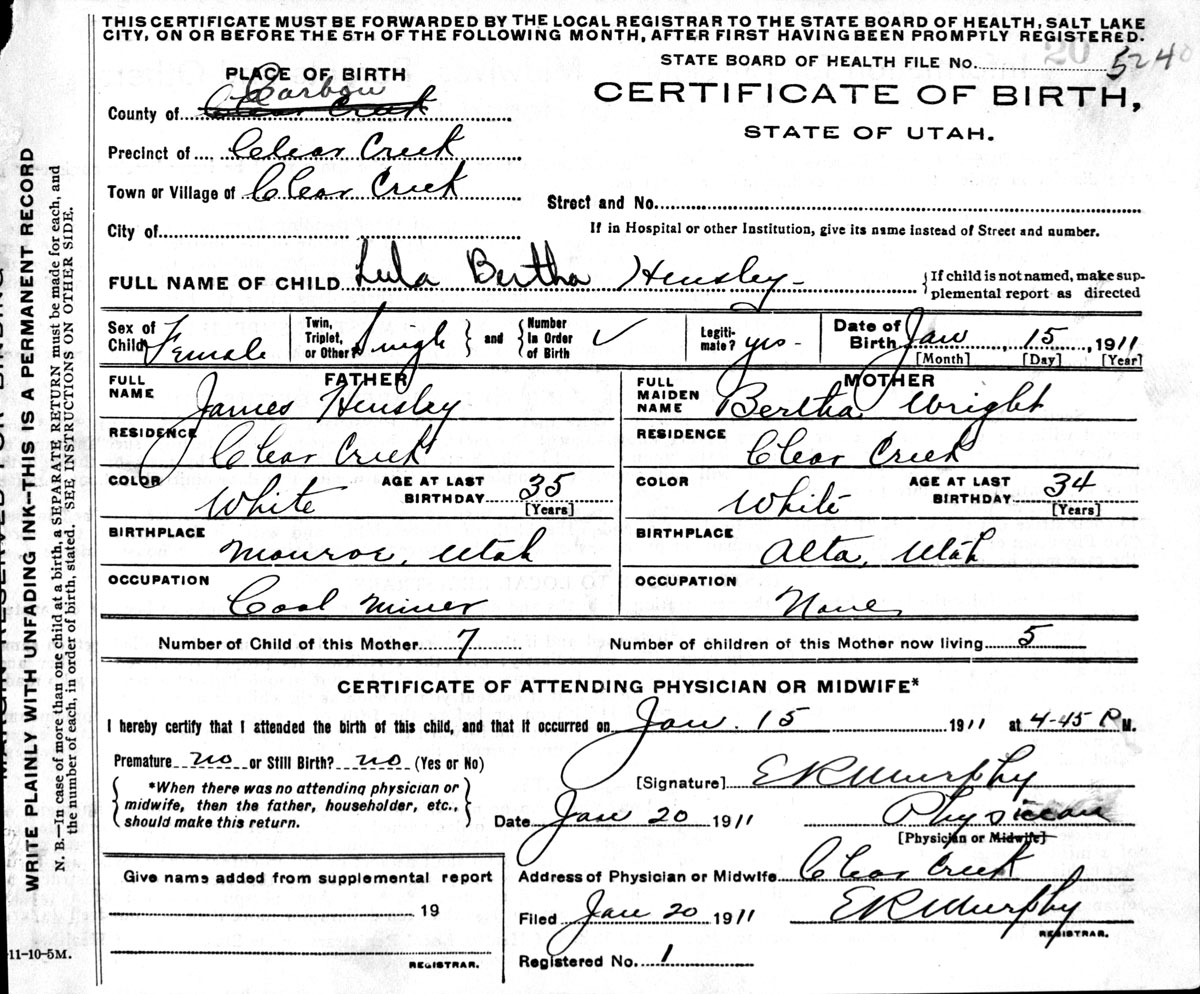 THIS CERTIFICATE MUST BE FORWARDED BY THE LOCAL REGISTRAR TO THE STATE BOARD OF HEALTH, SALT LAKE
CITY, ON OR BEFORE THE 5TH OF THE FOLLOWING MONTH, AFTER FIRST HAVING BEEN PROMPTLY REGISTERED.
20
STATE BOARD OF HEALTH FILE No. 5240
PLACE OF BIRTH
CERTIFICATE OF BIRTH,
STATE OF UTAH.
Carbon
County of Clear Creek
Precinct of Clear Creek
Town or Village of Clear Creek
Street and No.
City of
If in Hospital or other Institution, give its name instead of Street and number.
FULL NAME OF CHILD Lula Bertha Hensley
{If child is not named, make sup-
plemental report as directed
Sex of Child Female
Twin, Triplet, or Other? Single } and { Number In Order of Birth ✓
Legiti-mate? yes -
Date of Birth Jan 15, 1911
[Month] [Day] [Year]
FATHER
FULL NAME James Hensley
RESIDENCE Clear Creek
COLOR White AGE AT LAST BIRTHDAY 35 [Years]
BIRTHPLACE Monroe, Utah
OCCUPATION Coal Miner
MOTHER
FULL MAIDEN NAME Bertha Wright
RESIDENCE Clear Creek
COLOR White AGE AT LAST BIRTHDAY 34 [Years]
BIRTHPLACE Alta, Utah
OCCUPATION None
Number of Child of this Mother 7 Number of children of this Mother now living 5
CERTIFICATE OF ATTENDING PHYSICIAN OR MIDWIFE*
I hereby certify that I attended the birth of this child, and that it occurred on Jan. 15 1911 at 4-45 P M.
Premature no or Still Birth? no (Yes or No)
*When there was no attending physician or
midwife, then the father, householder, etc.,
should make this return.
[Signature] E R Murphy
Date Jan 20 1911
Physician
[Physician or Midwife]
Give name added from supplemental report
19
REGISTRAR.
Address of Physician or Midwife Clear Creek
Filed Jan 20 1911 E R Murphy
REGISTRAR.
Registered No. 1
11-10-5M.
WRITE PLAINLY WITH UNFADING INK-THIS IS A PERMANENT RECORD
N. B.—In case of more than one child at a birth, a SEPARATE RETURN must be made for each, and
the number of each, in order of birth, stated. SEE INSTRUCTIONS ON OTHER SIDE.